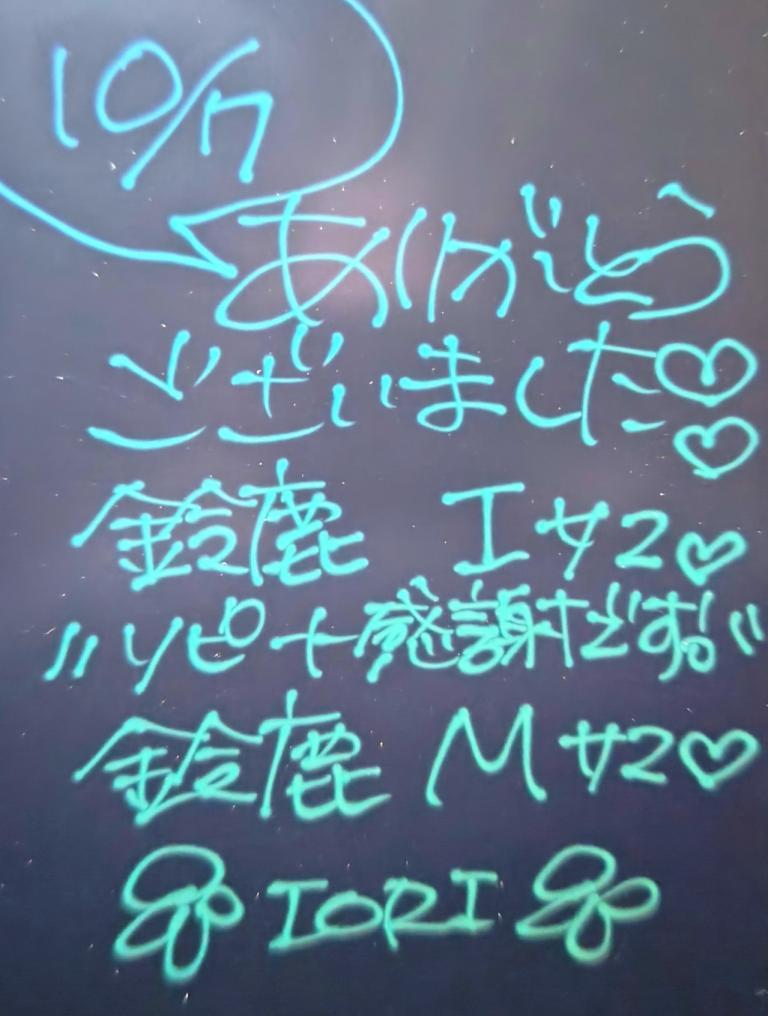 10/7
ありがとう
ございました♡♡
鈴鹿 Iサマ♡
"リピ十感謝だぞぉ"
鈴鹿 Mサマ♡
IORI